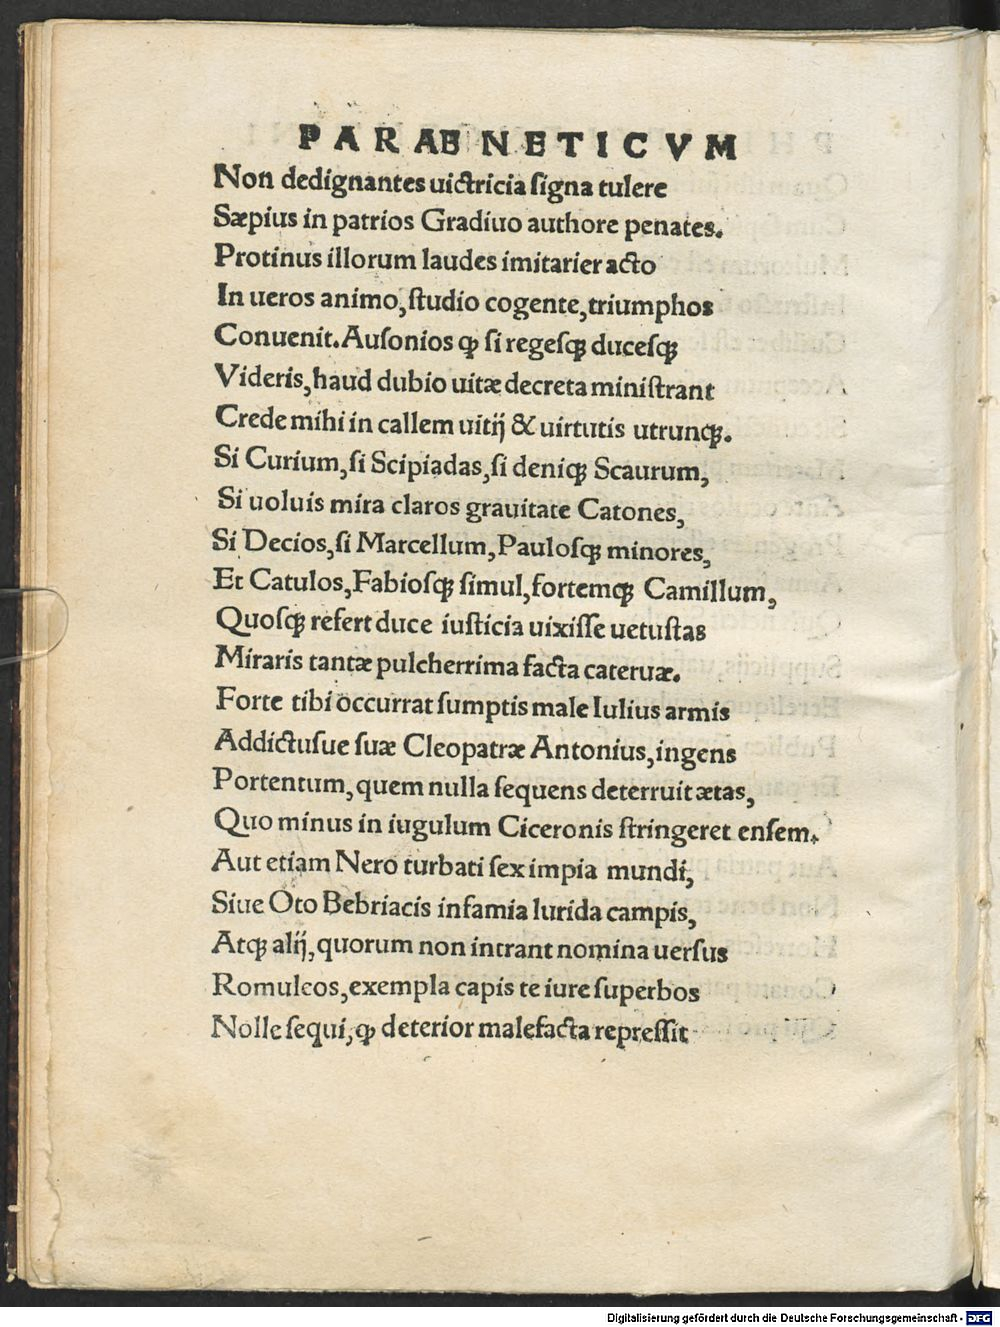 PARAENETICVM
Non dedignantes uictricia ſigna tulere
Sæpius in patrios Gradiuo authore penates.
Protinus illorum laudes imitarier acto
In ueros animo, ſtudio cogente, triumphos
Conuenit. Auſonios ꝙ ſi regeſqꝫ duceſqꝫ
Videris, haud dubio uitæ decreta miniſtrant
Crede mihi in callem uitij & uirtutis utrunqꝫ.
Si Curium, ſi Scipiadas, ſi deniqꝫ Scaurum,
Si uoluis mira claros grauitate Catones,
Si Decios, ſi Marcellum, Pauloſqꝫ minores,
Et Catulos, Fabioſqꝫ ſimul, fortemqꝫ Camillum,
Quoſqꝫ refert duce iuſticia uixiſſe uetuſtas
Miraris tantæ pulcherrima facta cateruæ.
Forte tibi occurrat ſumptis male Iulius armis
Addictuſue ſuæ Cleopatræ Antonius, ingens
Portentum, quem nulla ſequens deterruit ætas,
Quo minus in iugulum Ciceronis ſtringeret enſem.
Aut etiam Nero turbati fex impia mundi,
Siue Oto Bebriacis infamia lurida campis,
Atqꝫ alij, quorum non intrant nomina uerſus
Romuleos, exempla capis te iure ſuperbos
Nolle ſequi, ꝙ deterior malefacta repreſſit
Digitalisierung gefördert durch die Deutsche Forschungsgemeinschaft - DFG